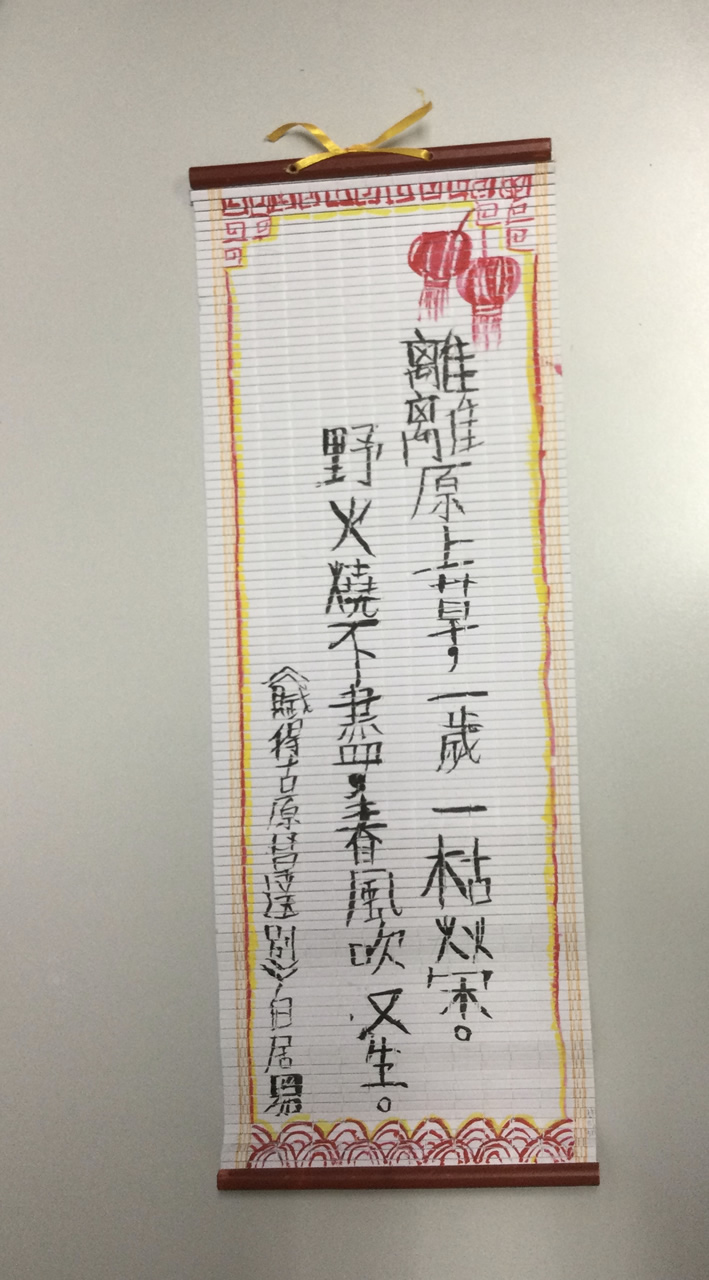 離離原上草，一歲一枯榮。
野火燒不盡，春風吹又生。
《賦得古原草送別》白居易